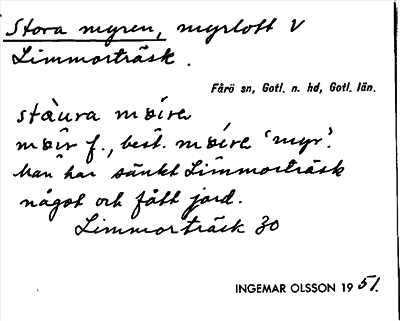 Stora myren, myrlott V
Limmorträsk.
Fårö sn, Gotl. n. hd, Gotl. län.
stàura mœ́ire
mœir f., best. mœ́ire 'myr'.
Man har sänkt Limmorträsk
något och fått jord.
Limmorträsk 30
INGEMAR OLSSON 19 51.